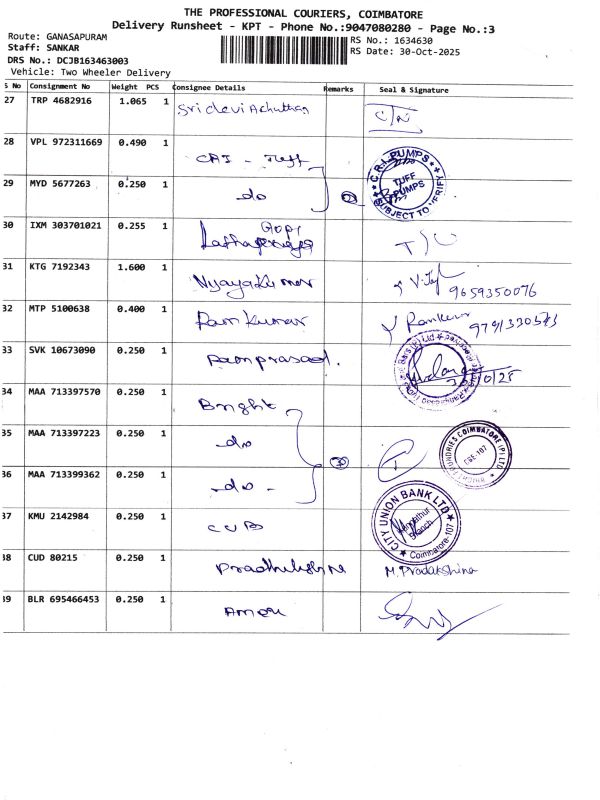 THE PROFESSIONAL COURIERS, COIMBATORE
Delivery Runsheet - KPT - Phone No.:9047080280 - Page No.:3
Route: GANASAPURAM
RS No.: 1634630
Staff: SANKAR
RS Date: 30-Oct-2025
DRS No.: DCJB163463003
Vehicle: Two Wheeler Delivery
S No Consignment No Weight PCS Consignee Details Remarks Seal & Signature
27 TRP 4682916 1.065 1 Sridevi Achuthan
28 VPL 972311669 0.490 1 CRI - Tuff
C.R.I.PUMPS
TUFF PUMPS
SUBJECT TO VERIFY
29 MYD 5677263 0.250 1 do 2
30 IXM 303701021 0.255 1 Gopi
31 KTG 7192343 1.600 1 Nyayakumar 9659350076
32 MTP 5100638 0.400 1 Ramkumar
33 SVK 10673090 0.250 1 Ramprasad.
34 MAA 713397570 0.250 1 Bright
35 MAA 713397223 0.250 1 do 3
FOUNDRIES COIMBATORE (P) LTD
CBE-107
36 MAA 713399362 0.250 1 do -
CITY UNION BANK LTD
Branch
Coimbatore-107
37 KMU 2142984 0.250 1 CUB
38 CUD 80215 0.250 1 M. Pradakshina
39 BLR 695466453 0.250 1